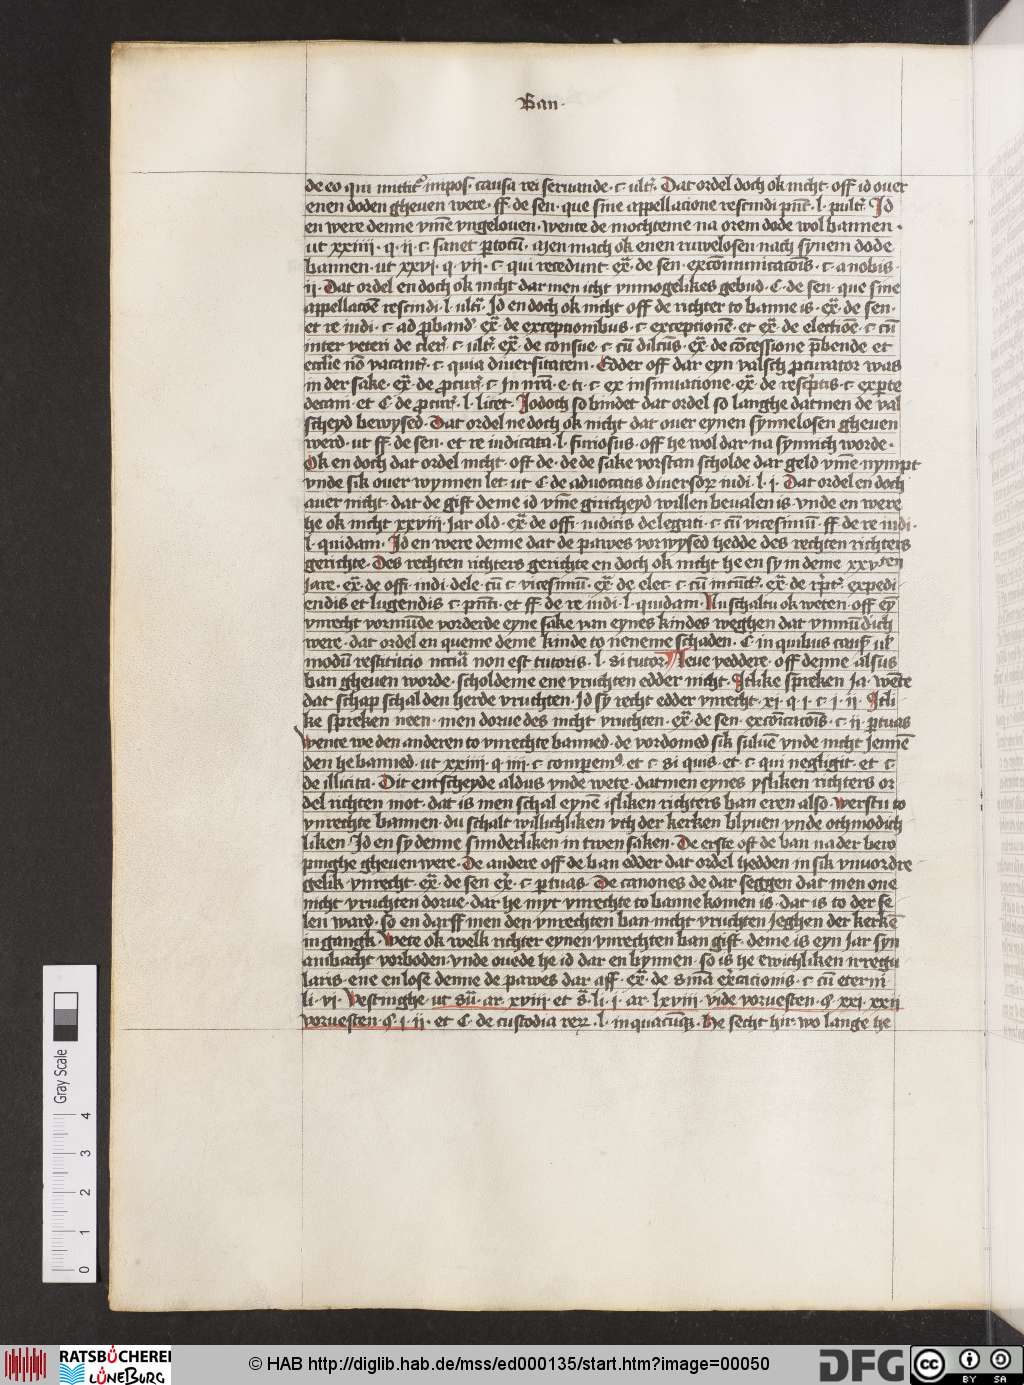 Ban·
de eo qui mittit᷒ impos· causa rei seruande· c· ult᷒· Dat ordel doch ok nicht· off id ouer
enen doden gheuen were· ff· de sen· que sine appellacione rescindi· l· Id
en were denne vm̄e vngelouen· wente de mochteme na orem dode wol bannen·
ut xxiiii· q· ii· c· sanet Men mach ok enen ruwelosen nach synem dode
bannen· ut xxvi· q· vii· c· qui recedunt· ex̄· de sen· excōmunicacōis· c· a nobis·
ii· Dat ordel en doch ok nicht dar men icht vnmogelikes gebud· C· de sen· que sine
appellacōe rescindi· l· ult᷒· Id en doch ok nicht off de richter to banne is· ex̄· de sen·
et re iudi· c· ad ꝓband᷒· ex̄· de exceptionibus· c· exceptionē· et ex̄· de electiōe· c· cū
inter veteri· de cler᷒· c· ult᷒· ex̄· de consue· c· cū dilcūs· ex̄· de cōcessione p̄bende et
ecclie nō vacant᷒· c· quia diuersitatem· Edder off dar eyn valsch ꝓcurator was
in der sake· ex̄· de ꝓcur᷒· c· In nr̄a· e· ti· c· ex insinuacione· ex̄· de c· exꝑte
decani· et C· de ꝓcur᷒· l· licet· Jodoch so bindet dat ordel so langhe datmen de val
scheyd bewysed· Dat ordel ne doch ok nicht dat ouer eynen synnelosen gheuen
werd· ut ff· de sen· et re iudicata· l· furiosus· off he wol dar na synnich worde·
Ok en doch dat ordel nicht· oft de· de de sake vorstan scholde dar geld vm̄e nympt
vnde sik ouer wynnen let· ut C· de aduocatis diuersoꝝ iudi· l· i· Dat ordel en doch
auer nicht· dat de gift deme id vm̄e giricheyd willen beualen is· vnde en were
he ok nicht xxviii· Jar old· ex̄· de offi· iudicis delegati· c· cū vicesimū· ff· de re iudi·
l· quidam· Id en were denne dat de pawes vorwysed hedde des rechten richters
gerichte· Des rechten richters gerichte en doch ok nicht he en sy in deme xxvten
jare· ex̄· de offi· iudi· dele· cū c· vicesimū· ex̄· de elec· c· cū ex̄· de expedi
endis et lugendis· c· et ff· de re iudi· l· quidam· Nu schaltu ok weten· off ey̅
vnrecht vormūde vorderde eyne sake van eynes kindes weghen dat vnmūdich
were· dat ordel en queme deme kinde to neneme schaden· C· in quibus caus᷒
modū restitucio non est tutoris· l· si tutor· Leue veddere· off denne alsus
ban gheuen worde· scholdeme ene vruchten edder nicht· Itlike spreken ja· wēte
dat schap schal den herde vruchten· Id sy recht edder vnrecht· xi· q· i· c· i· ii· Itli
ke spreken neen· men dorue des nicht vruchten· ex̄· de sen· excōicacōis· c· ii· ꝑtuas
wente we den anderen to vnrechte banned· de vordomed sik suluē vnde nicht jennē
den he banned· ut xxiiii· q· iii· c· comperim᷒· et c· si quis· et c· qui negligit· et c·
de illicita· Dit entscheyde aldus vnde wete· datmen eynes ysliken richters or
del richten mot· dat is men schal eynē isliken richters ban eren also· werstu to
vnrechte bannen· du schalt willichliken vth der kerken blyuen vnde othmodich
liken· Id en sy denne sunderliken in twen saken· De erste oft de ban na der bero
pinghe gheuen were· De andere off de ban edder dat ordel hedden in sik vnuordre
gelik vnrecht· ex̄· de sen· ex̄· c· ꝑtuas· De canones de dar seggen dat men one
nicht vruchten dorue· dar he myt vnrechte to banne komen is· dat is to der se
len ward· so en darff men den vnrechten ban nicht vruchten jeghen der kerkē
ingangk· Wete ok welk richter eynen vnrechten ban gift· deme is eyn jar syn
ambacht vorboden· vnde ouede he id dar en bynnen· so is he ewichliken irregu
laris· ene en lose denne de pawes dar aff· ex̄· de c· cū eterni
li· vi· Vestinghe ut sū· ar· xviii· et s̄· li· i· ar· lxviii· vide voruesten· q· xxi· xxii
voruesten· q· i· ii· et C· de custodia reꝝ· l· in quacūqꝫ· He secht hir wo lange he
Gray Scale
4
3
2
1
0
RATSBÜCHEREI
LÜNEBURG
© HAB http://diglib.hab.de/mss/ed000135/start.htm?image=00050
DFG
cc
BY SA